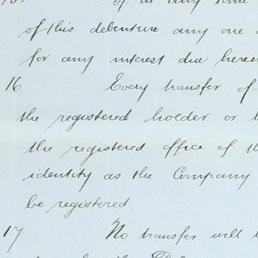 If at any time
of this debenture any one
for any interest due
16 Every transfer of
the registered holder or
the registered office of
identity as the Company
be registered.
17 No transfer will